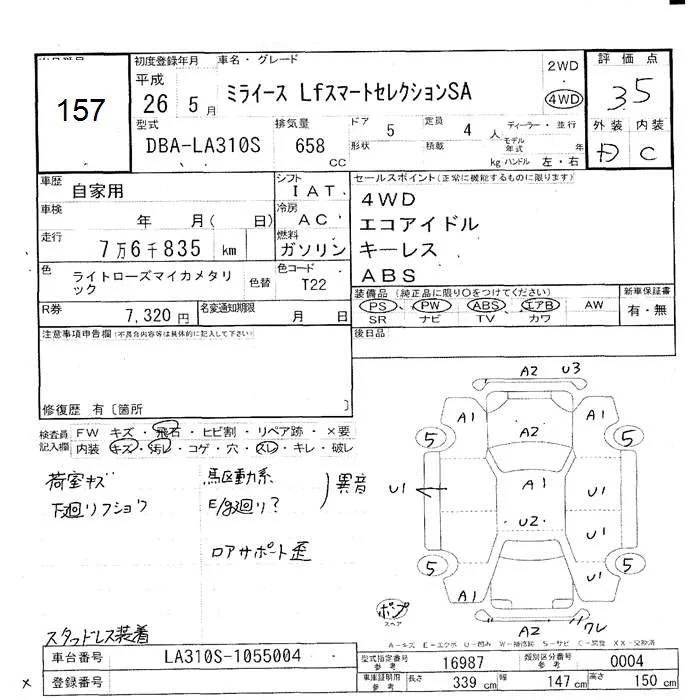 初度登録年月 車名・グレード
157
平成 26 5月
ミライース LfスマートセレクションSA
2WD
4WD
評価点
35
外装 内装
D C
型式 排気量 ドア 5 定員 4 人 ディーラー・並行
DBA-LA310S 658 CC 形状 積載 kg モデル年式 ハンドル 左・右
車歴 自家用 シフト IAT.
車検 年 月( 日) 冷房 AC
走行 7万6千835 km 燃料 ガソリン
色 ライトローズマイカメタリック 色替 色コード T22
R券 7,320円 名変通知期限 月 日
セールスポイント(正常に機能するものに限ります)
4WD
エコアイドル
キーレス
ABS
装備品(純正品に限り○をつけてください) 新車保証書
PS PW ABS エアB AW 有・無
SR ナビ TV カワ
注意事項申告欄(不具合内容等は具体的に記入して下さい)
後日品
修復歴 有〔箇所 〕
検査員記入欄 FW キズ・飛石・ヒビ割・リペア跡・×要
内装 キズ・汚レ・コゲ・穴・スレ・キレ・破レ
荷室キズ
下廻リフショク
馬区動系
E/g廻リ?
異音
ロアサポート歪
スタッドレス装着
A2 U3
A1 A1
5 A2 5
A1
U1 U1
U2
5 U1 5
A1
ボプ
スペア
A2 ワレ
A-キズ E-エクボ U-凹み W-補修跡 S-サビ C-腐食 XX-交換済
車台番号 LA310S-1055004
登録番号
×
型式指定番号 参考 16987 類別区分番号 参考 0004
車庫証明用 参考 長さ 339 cm 幅 147 cm 高さ 150 cm